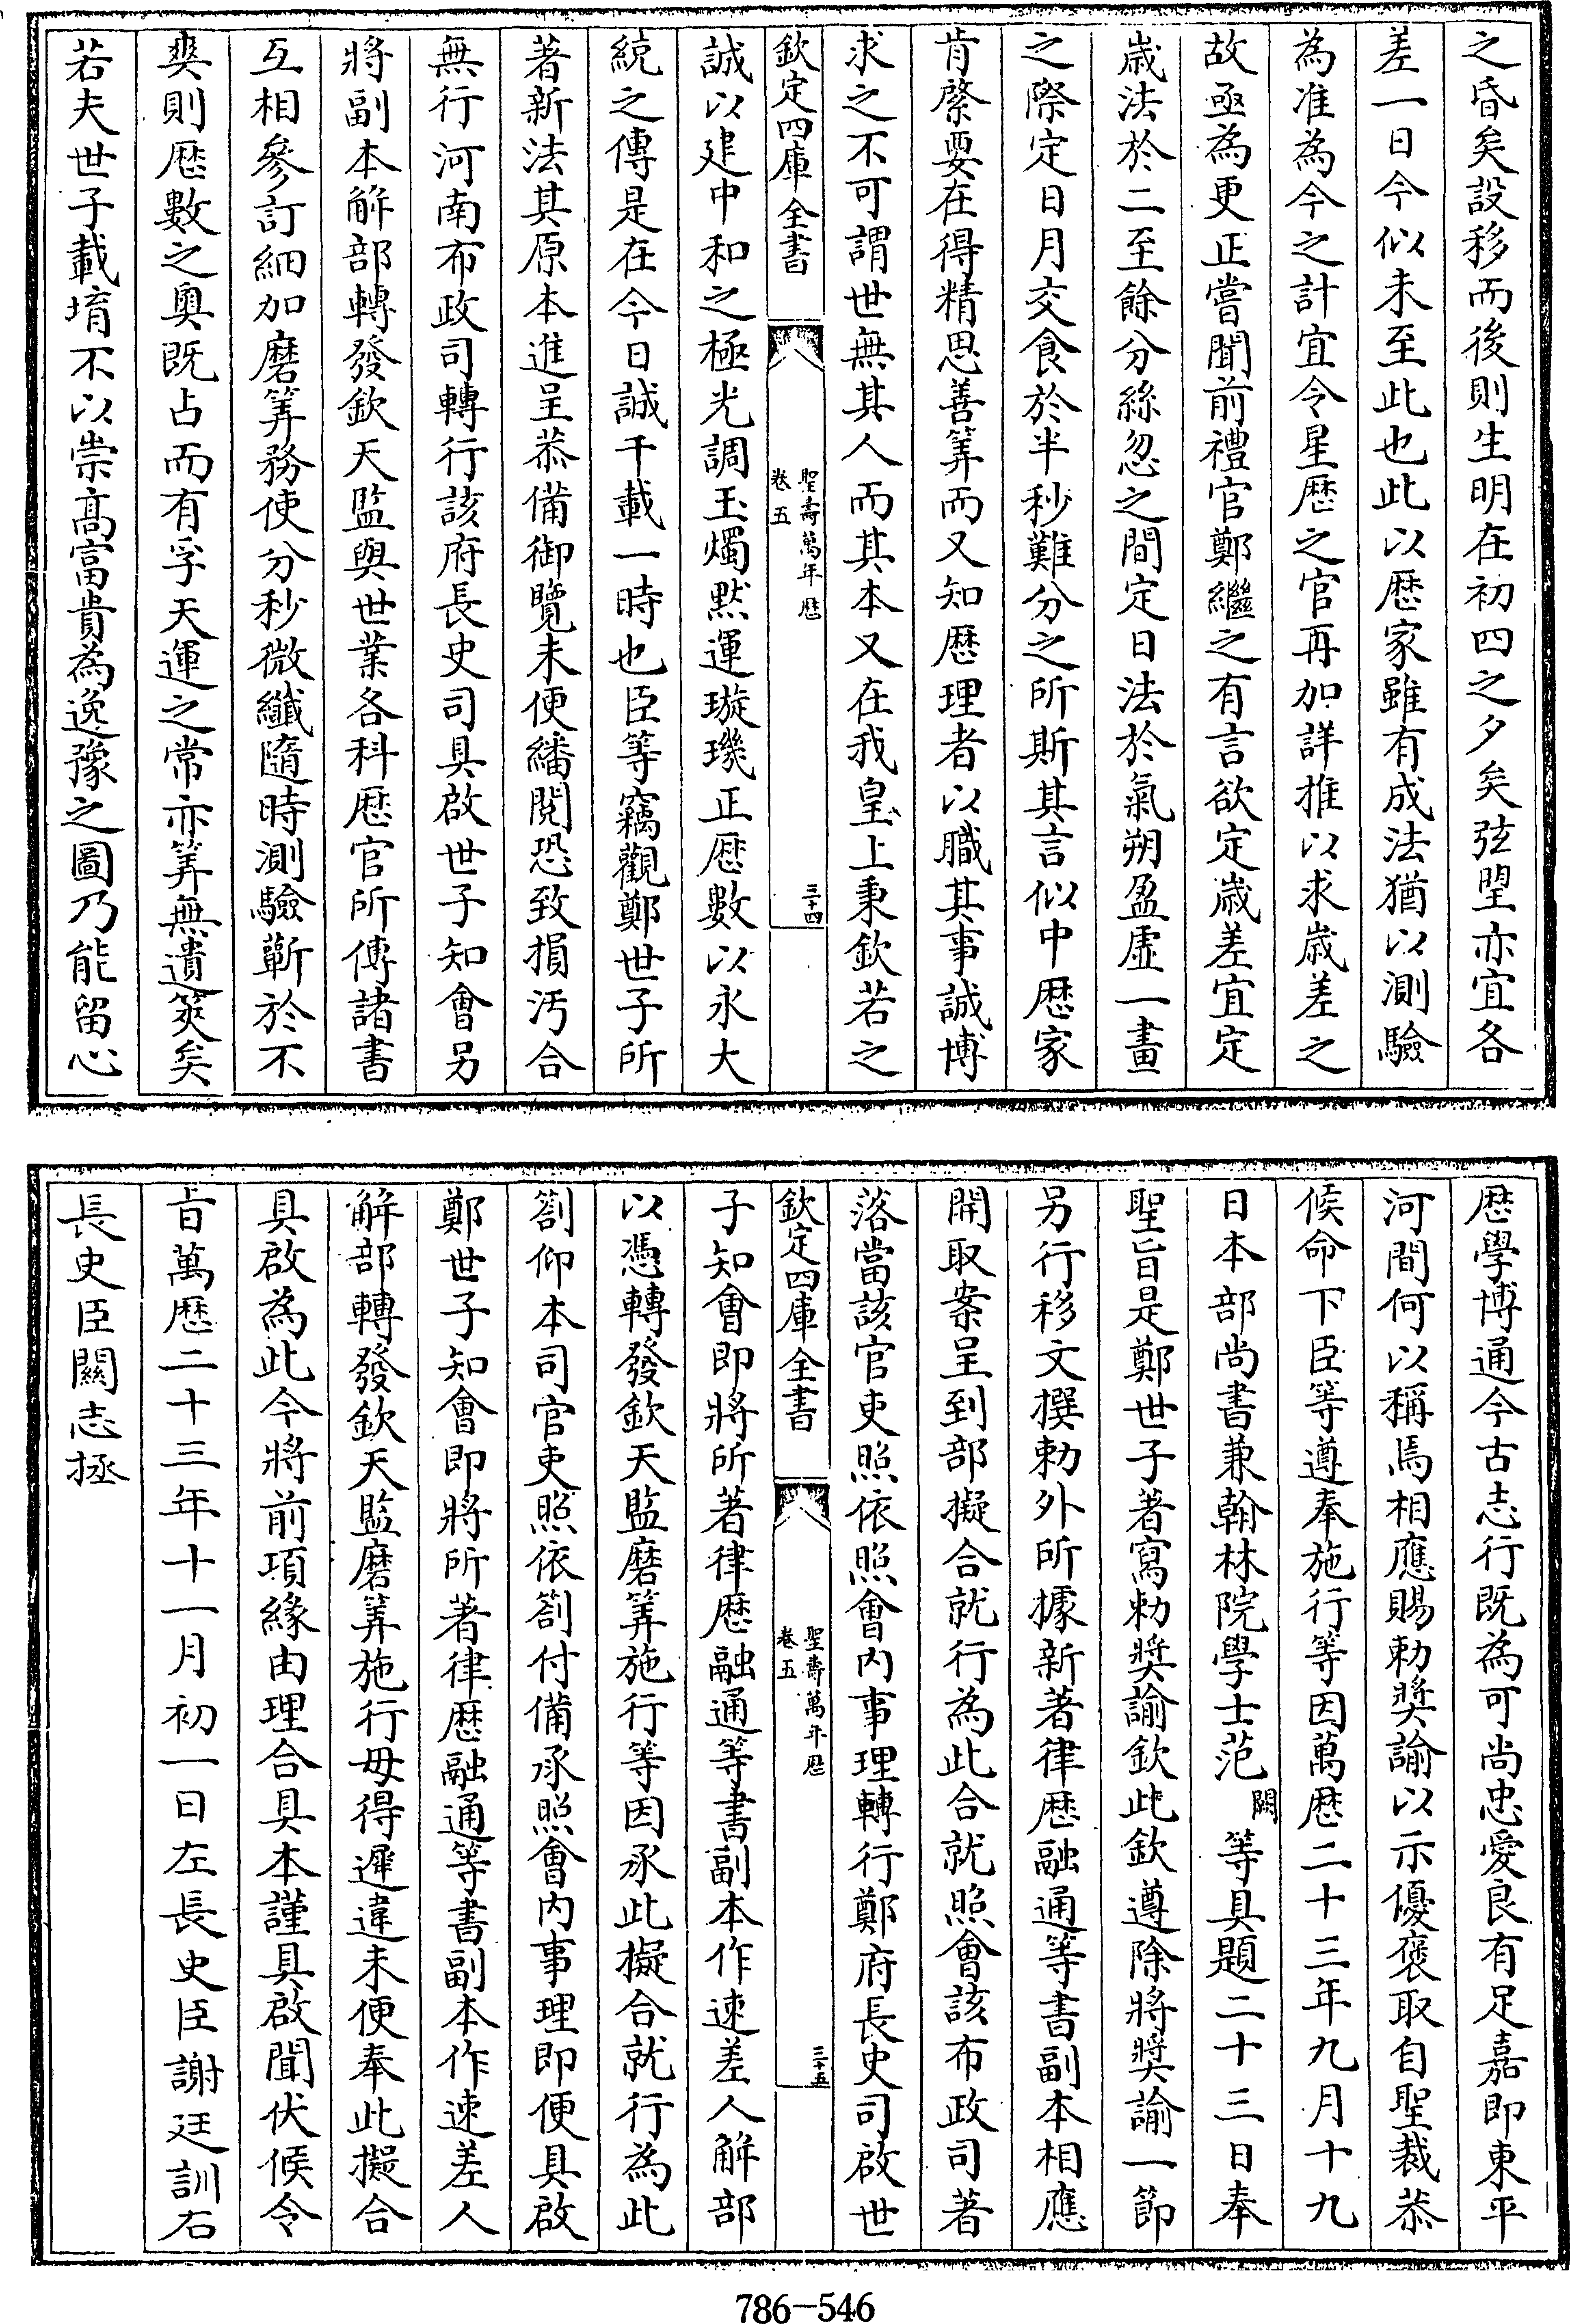 之昏矣設移而後則生明在初四之夕矣弦朢亦宜各
差一日今似未至此也此以厯家雖有成法猶以測驗
為准為今之計宜令星厯之官再加詳推以求歲差之
故亟為更正嘗聞前禮官鄭繼之有言欲定歲差宜定
歲法於二至餘分絲忽之間定日法於氣朔盈虛一畫
之際定日月交食於半秒難分之所斯其言似中厯家
肯綮要在得精思善筭而又知厯理者以職其事誠博
求之不可謂世無其人而其本又在我皇上秉欽若之
欽定四庫全書
聖壽萬年厯
卷五
三十四
誠以建中和之極光調玉燭黙運璇璣正厯數以永大
統之傳是在今日誠千載一時也臣等竊觀鄭世子所
著新法其原本進呈恭備御覽未便繙閱恐致損汚合
無行河南布政司轉行該府長史司具啟世子知會另
將副本解部轉發欽天監與世業各科厯官所傳諸書
互相參訂細加磨筭務使分秒微纖隨時測驗蘄於不
爽則厯數之奥既占而有孚天運之常亦筭無遺筴矣
若夫世子載堉不以崇髙富貴為逸豫之圖乃能留心
厯學博通今古志行既為可尚忠愛良有足嘉即東平
河間何以稱焉相應賜勅奬諭以示優褒取自聖裁恭
候命下臣等遵奉施行等因萬厯二十三年九月十九
日本部尚書兼翰林院學士范闕等具題二十三日奉
聖旨是鄭世子著寫勅奬諭欽此欽遵除將奬諭一節
另行移文撰勅外所據新著律厯融通等書副本相應
開取案呈到部擬合就行為此合就照會該布政司著
落當該官吏照依照會内事理轉行鄭府長史司啟世
欽定四庫全書
聖壽萬年厯
卷五
三十五
子知會即將所著律厯融通等書副本作速差人解部
以憑轉發欽天監磨筭施行等因承此擬合就行為此
劄仰本司官吏照依劄付備承照會内事理即便具啟
鄭世子知會即將所著律厯融通等書副本作速差人
解部轉發欽天監磨筭施行毋得遲違未便奉此擬合
具啟為此今將前項緣由理合具本謹具啟聞伏候令
㫖萬厯二十三年十一月初一日左長史臣謝廷訓右
長史臣關志拯
786-546